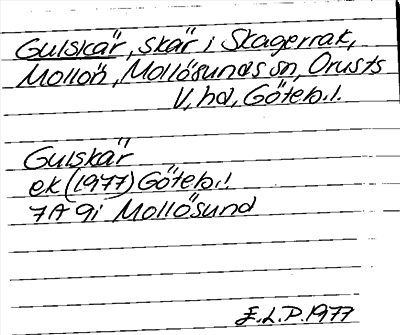 Gulskär, skär i Skagerrak,
Mollön, Mollösunds sn, Orusts
V, hd, Göteb.l.
Gulskär
ek (1977) Göteb.l.
7A 9i Mollösund
E.L.P. 1977